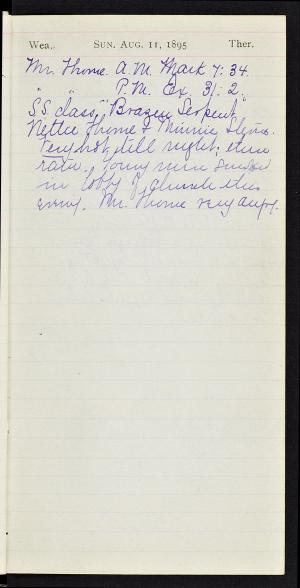 Wea. SUN. AUG. 11, 1895 Ther.
Mr. Thorne. A.M. Mark 7:34.
" " P.M. Ex. 31:2.
S.S. class, "Brazen Serpent,"
Nettie Thorne & Minnie
Very hot till night, then
rain. Young men smoked
in lobby of church this
evng. Mr. Thorne very angry.